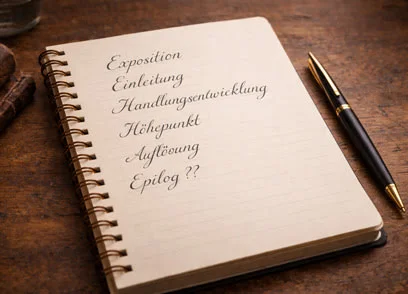 Exposition
Einleitung
Handlungsentwicklung
Höhepunkt
Auflösung
Epilog ??